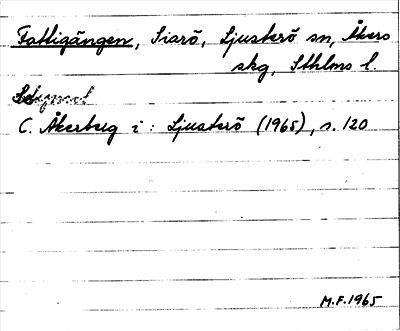 Fattigängen, Siarö, Ljusterö sn, Åkers
skg, Sthlms l.
C. Åkerberg i: Ljusterö (1965), s. 120
M.F. 1965